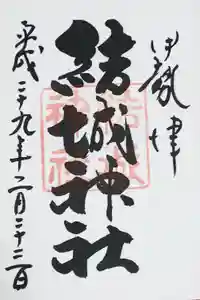 伊勢 津
結城神社
結城神社
平成二十九年二月二十二日